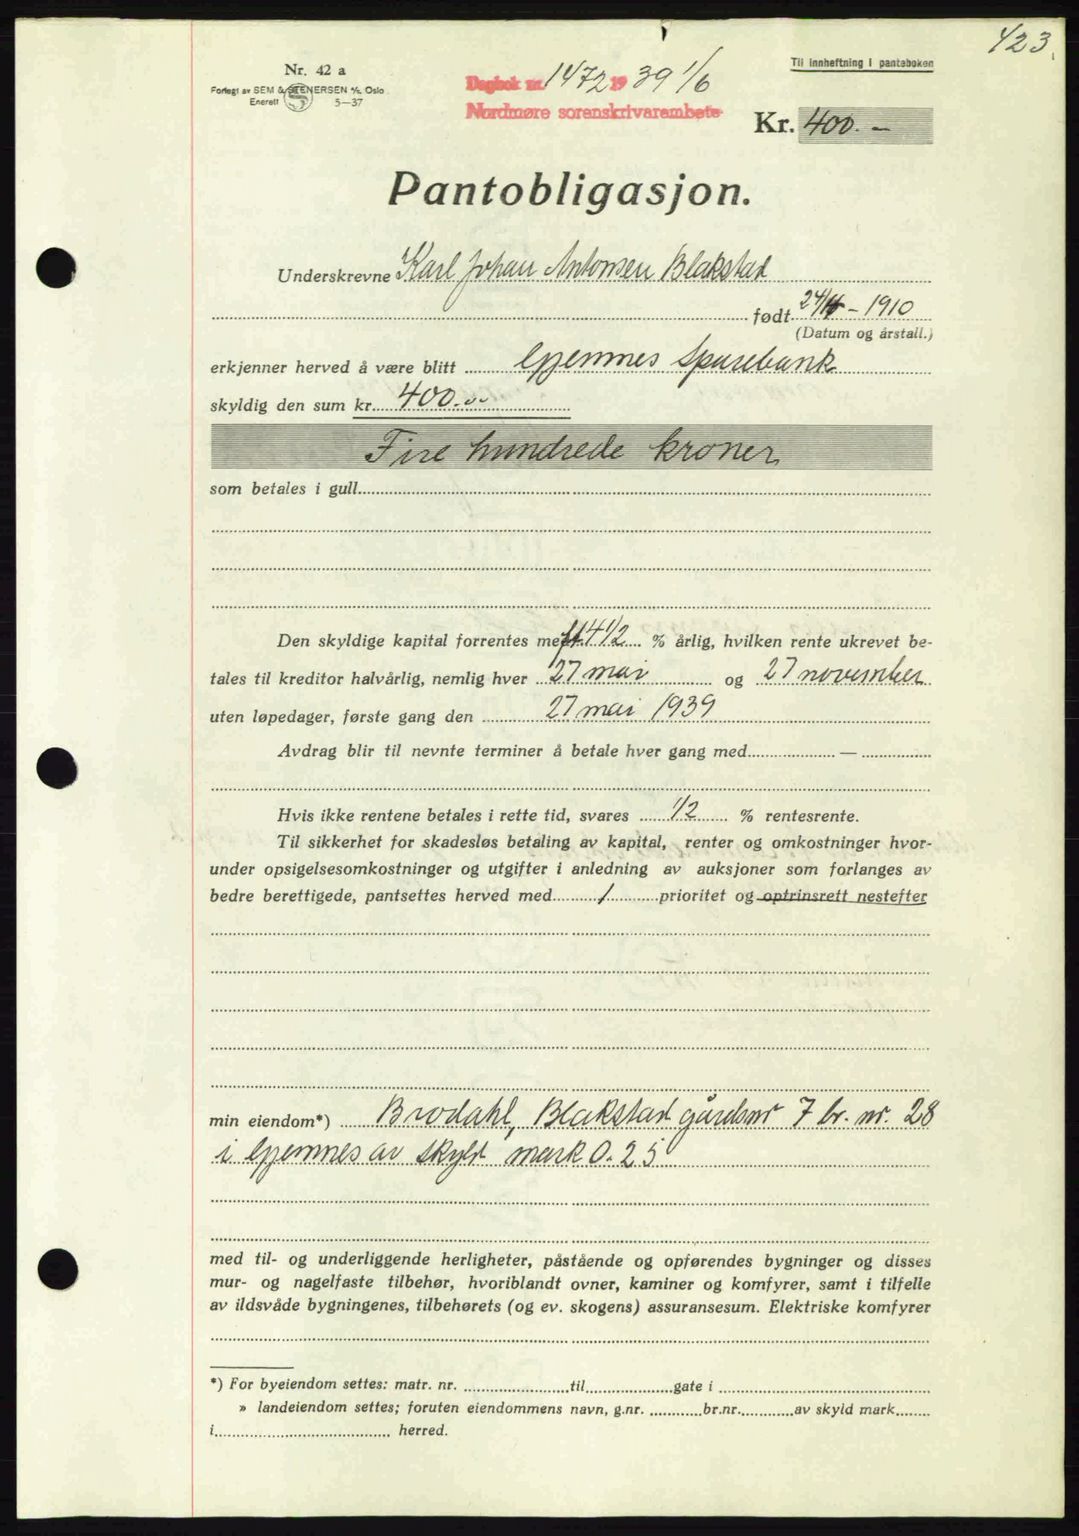 423.
Nr. 42 a
Forlegt av SEM & STENERSEN A/S, Oslo
Enerett 5—37
Dagbok nr. 1472 1939 1/6
Nordmøre sorenskrivarembete
Til innheftning i panteboken
Kr. 400.—
Pantobligasjon.
Underskrevne Karl Johan Antonsen Blakstad
født 24/ - 1910
(Datum og årstall.)
erkjenner herved å være blitt Gjemnes Sparebank
skyldig den sum kr. 400.00
Fire hundrede kroner
som betales i gull
Den skyldige kapital forrentes med 4 1/2 % årlig, hvilken rente ukrevet be-
tales til kreditor halvårlig, nemlig hver 27 mai og 27 november
uten løpedager, første gang den 27 mai 1939
Avdrag blir til nevnte terminer å betale hver gang med —
Hvis ikke rentene betales i rette tid, svares 1/2 % rentesrente.
Til sikkerhet for skadesløs betaling av kapital, renter og omkostninger hvor-
under opsigelsesomkostninger og utgifter i anledning av auksjoner som forlanges av
bedre berettigede, pantsettes herved med 1 prioritet og optrinsrett nestefter
min eiendom*) Brodahl, Blakstad gårdsnr 7 br. nr. 28
i Gjemnes av skyld mark 0.25
med til- og underliggende herligheter, påstående og opførendes bygninger og disses
mur- og nagelfaste tilbehør, hvoriblandt ovner, kaminer og komfyrer, samt i tilfelle
av ildsvåde bygningenes, tilbehørets (og ev. skogens) assuransesum. Elektriske komfyrer
*) For byeiendom settes: matr. nr. til gate i
» landeiendom settes; foruten eiendommens navn, g.nr. br.nr. av skyld mark
i herred.